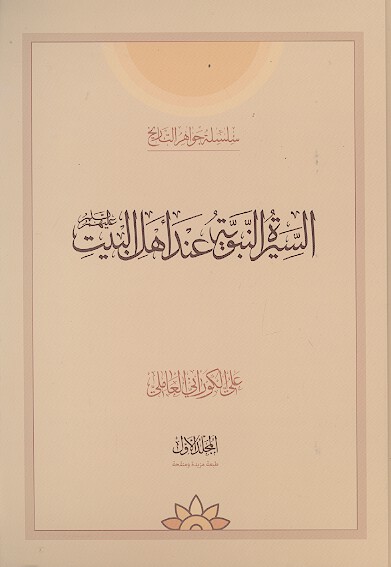 سلسلة جواهر التاريخ
السيرة النبوية عند أهل البيت عليهم السلام
علي الكوراني العاملي
المجلد الأول
طبعة مزيدة ومنقحة